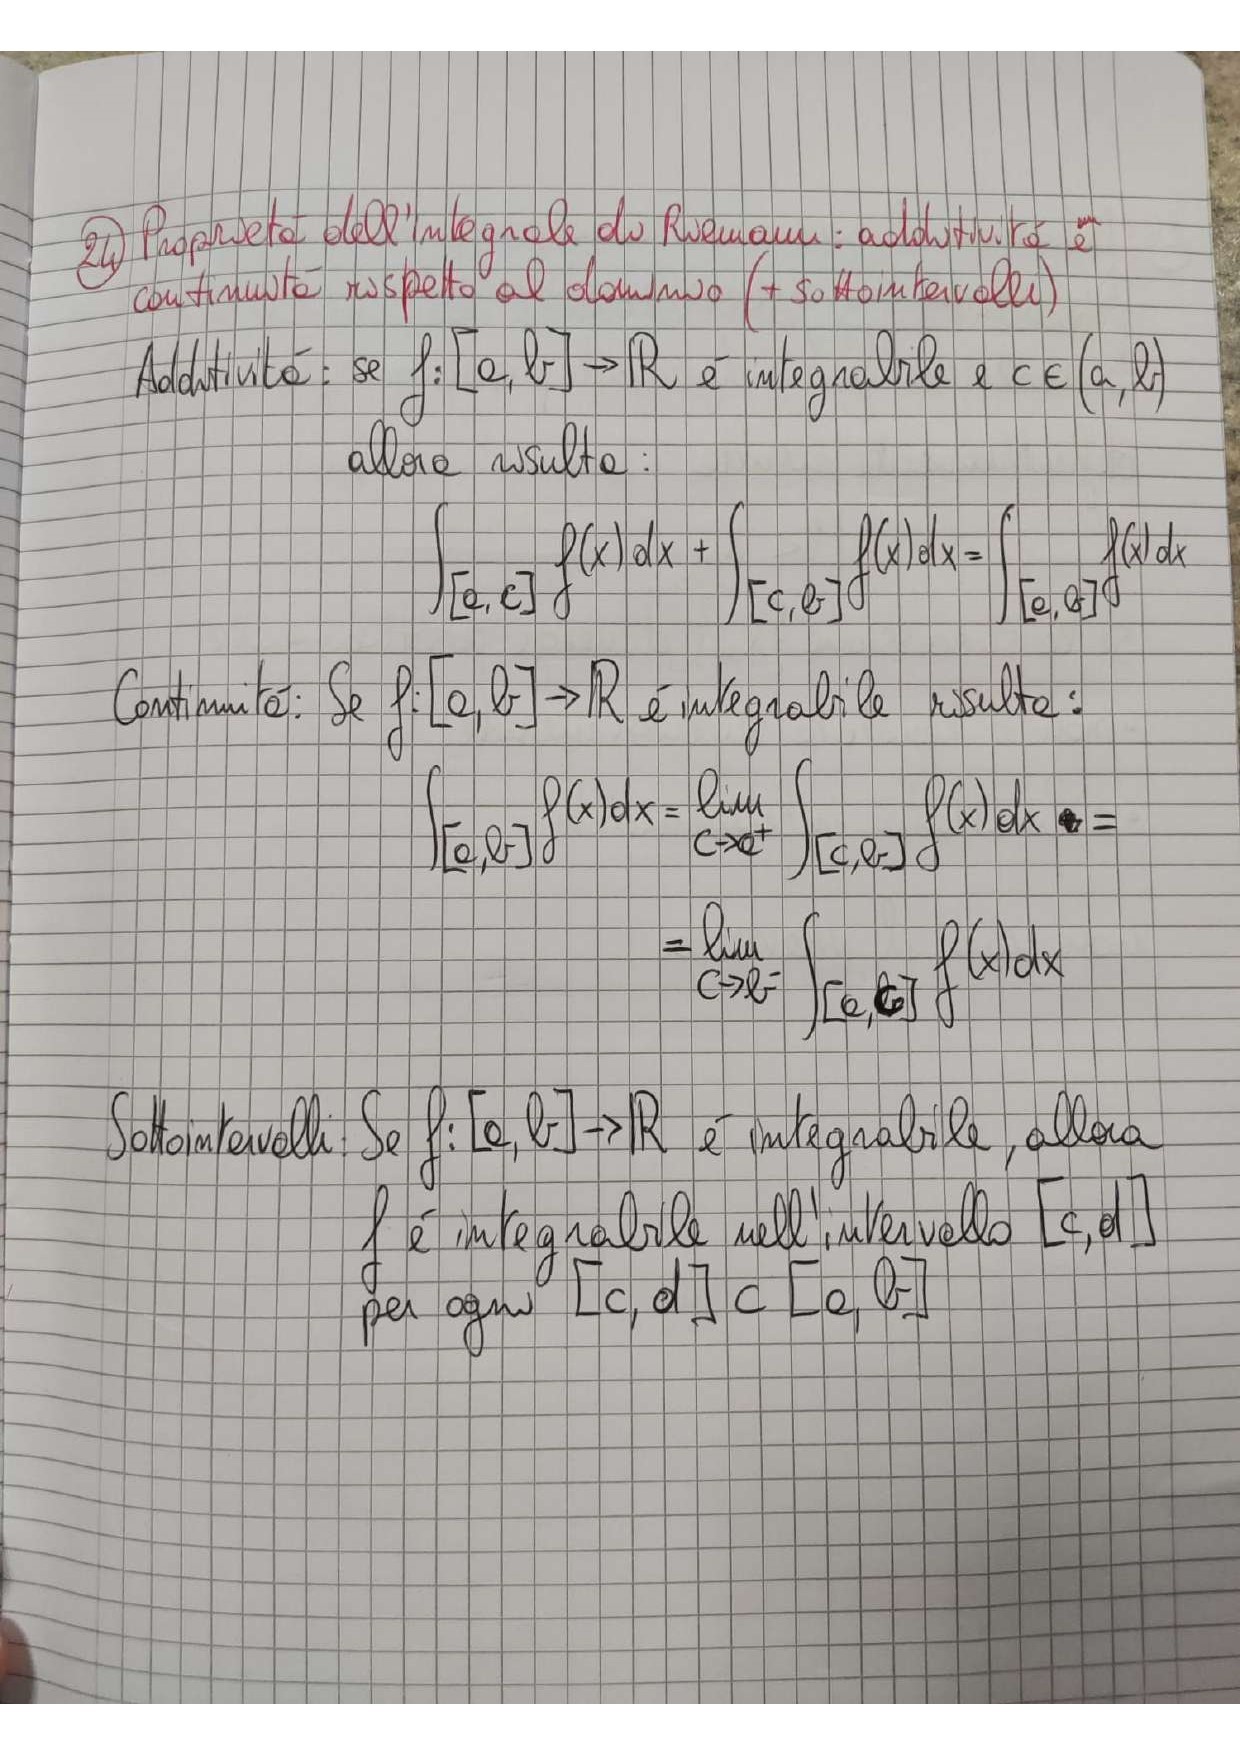 24) Proprietà dell'integrale di Riemann: additività e
continuità rispetto al dominio (+ sottointervalli)
Additività: se f: [a, b] → ℝ è integrabile e c ∈ (a, b)
allora risulta:
∫_[a, c] f(x) dx + ∫_[c, b] f(x) dx = ∫_[a, b] f(x) dx
Continuità: Se f: [a, b] → ℝ è integrabile risulta:
∫_[a, b] f(x) dx = lim_{c→a⁺} ∫_[c, b] f(x) dx =
= lim_{c→b⁻} ∫_[a, c] f(x) dx
Sottointervalli: Se f: [a, b] → ℝ è integrabile, allora
f è integrabile nell'intervallo [c, d]
per ogni [c, d] ⊂ [a, b]